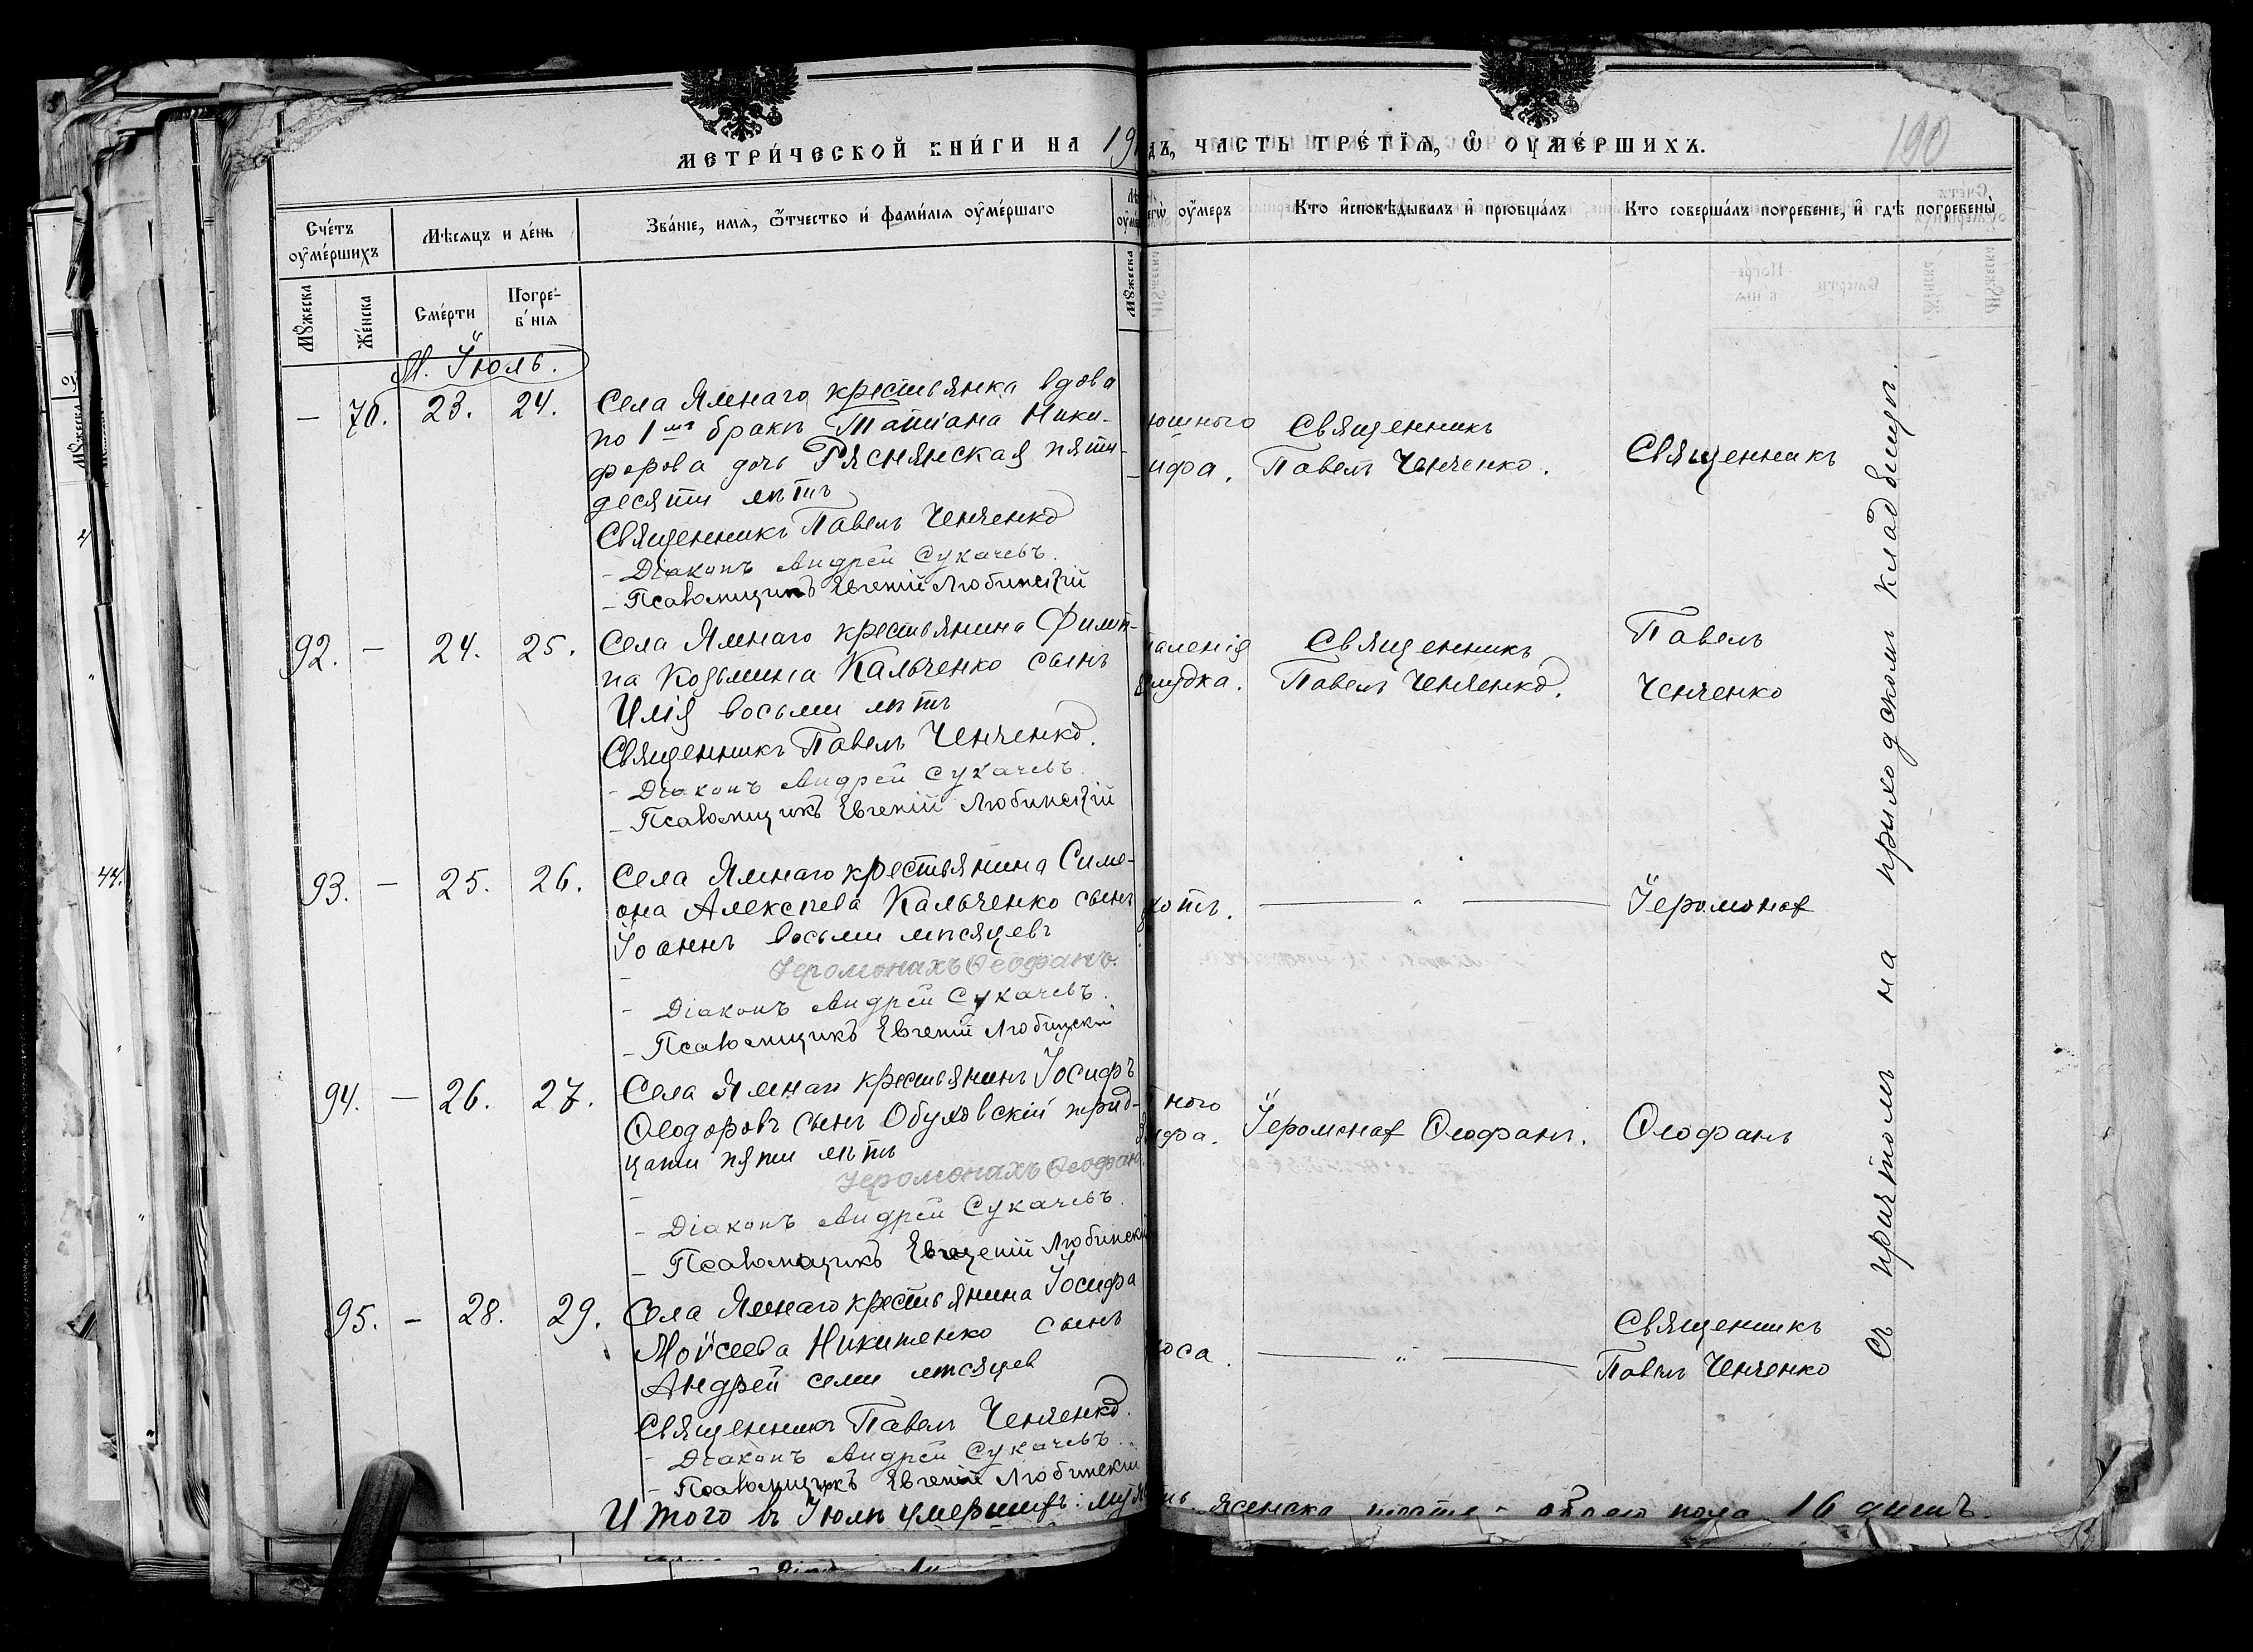 МЕТРИ́ЧЕСКОЙ КНИ́ГИ НА 19
дъ, ЧАСТЬ ТРЕ́ТЇѦ, Ѿ ОУМЕ́РШИХЪ.
190
Сче́тъ оуме́ршихъ
Мѣсяцъ и де́нь
Зва́нїе, имѧ, ѿтчество и́ фами́лїѧ оуме́ршаго
оу́меръ
Кто и́сповѣдывалъ и҆ прїобща́лъ
Кто соверша́лъ погребенїе, и҆ гдѣ погребены̀
Мꙋжеска
Же́нска
Сме́рти
Погре-
б́нїѧ
Мꙋжеска
М. Іюль.
— 70. 23. 24.
Села Ямнаго крестьянка вдова
по 1мъ бракѣ Татіана Ники-
форова дочь Ряснянская пяти-
десяти лѣтъ
Священникъ Павелъ Ченченко
- Діаконъ Андрей Сукачевъ.
- Псаломщикъ Евгеній Любинскій
ифа.
Священникъ
Павелъ Ченченко.
Священникъ
92. — 24. 25.
Села Ямнаго крестьянина Филип-
па Козьмина Кальченко сынъ
Илія восьми лѣтъ
Священникъ Павелъ Ченченко.
- Діаконъ Андрей Сукачевъ.
- Псаломщикъ Евгеній Любинскій
паленія
желудка.
Священникъ
Павелъ Ченченко.
Павелъ
Ченченко
93. — 25. 26.
Села Ямнаго крестьянина Симе-
она Алексѣева Кальченко сынъ
Іоаннъ восьми мѣсяцевъ
- Іеромонахъ Ѳеофанъ.
- Діаконъ Андрей Сукачевъ.
- Псаломщикъ Евгеній Любинскій
котъ.
— " —
Іеромонах
94. — 26. 27.
Села Ямнаго крестьянинъ Іосифъ
Ѳеодоровъ сынъ Обуховскій трид-
цати пяти лѣтъ
- Іеромонахъ Ѳеофан
- Діаконъ Андрей Сукачевъ.
- Псаломщикъ Евгеній Любински
ного
ифа.
Іеромонах Ѳеофанъ.
Ѳеофанъ
95. — 28. 29.
Села Ямнаго крестьянина Іосифа
Моѵсеева Никитенко сынъ
Андрей семи мѣсяцев
Священникъ Павелъ Ченченко.
- Діаконъ Андрей Сукачевъ.
- Псаломщикъ Евгеній Любински
оса.
— " —
Священникъ
Павелъ Ченченко
съ причтомъ на приходском кладбищѣ.
Итого въ Іюлѣ умершихъ: муж
женска обоего пола 16 душъ.